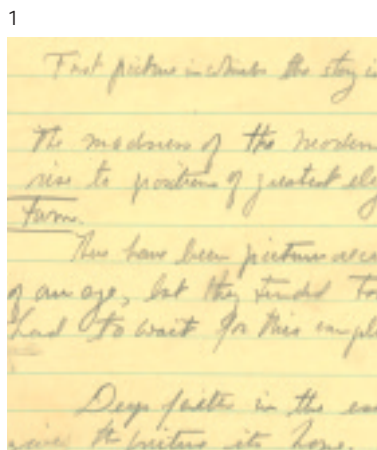 1
First picture in which the story i
The madness of the modern
rise to positions of greatest ele
Farm.
There have been pictures
of an age, but they tended to
had to wait for this
Deep faith in the
the picture its hope.